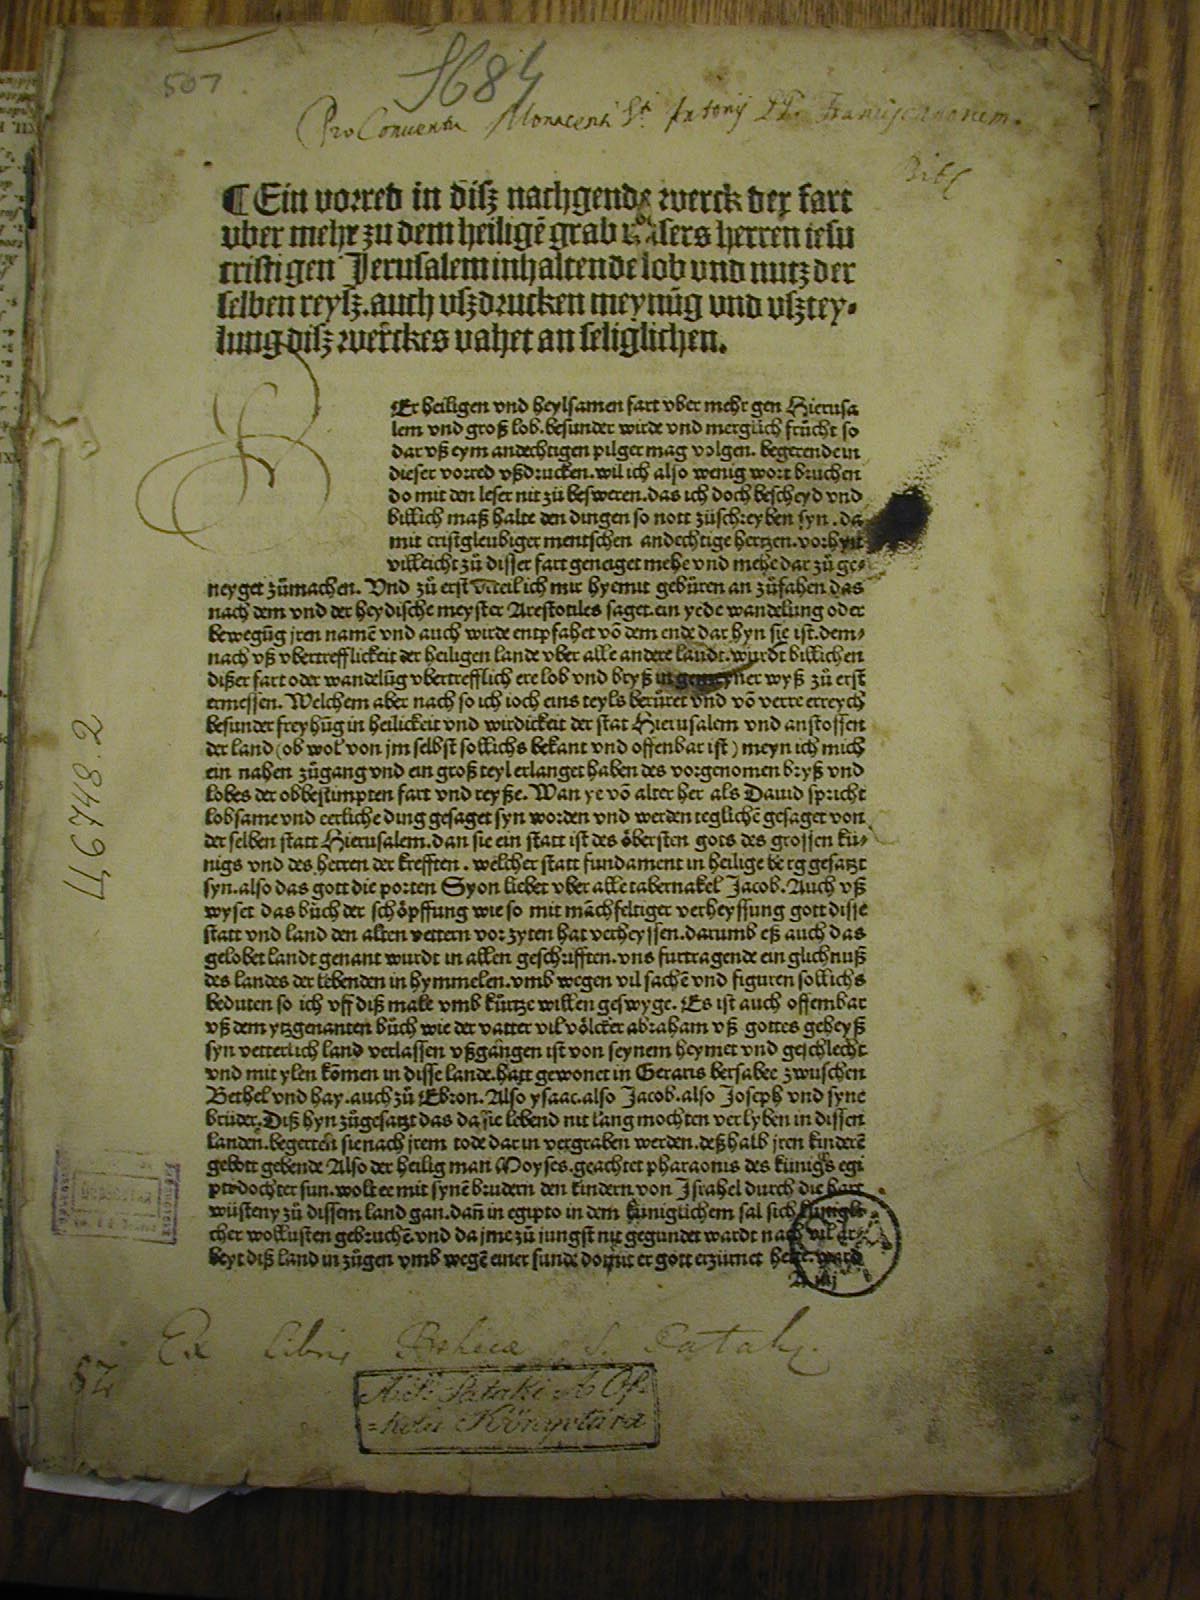 507
Pro Conventu Monacensi Sti Antonij PP. Franciscanorum.
Bibl
¶ Ein vorred in disz nachgende werck der fart
vber mehr zu dem heiligē grab vnsers herren iesu
cristi gen Jerusalem inhaltende lob vnd nutz der
selben reysz. auch vszdrucken meynūg vnd vsztey⸗
lung disz werckes vahet an seliglichen.
Er heiligen vnd heylsamen fart vber mehr gen Hierusa
lem vnd groß lob. besunder wirde vnd mergklich frucht so
dar vß eym andechtigen pilger mag volgen. begerende in
dieser vorred vßdrucken. wil ich also wenig wort bruchen
do mit den leser nit zů besweren. das ich doch bescheyd vnd
billich maß halte den dingen so nott zůschreyben syn. da
mit cristgleubiger mentschen andechtige hertzen. vorhyn
villeicht zů disser fart geneiget mehe vnd mehe dar zů ge⸗
neyget zůmachen. Vnd zů erst vrteil ich mir hyemit gebüren an zůfahen das
nach dem vnd der heydische meyster Arestotiles saget. ein yede wandelung oder
bewegūg jren namē vnd auch wirde entpfahet vō dem ende dar hyn sie ist. dem⸗
nach vß vbertrefflickeit der heiligen lande vber alle andere landt. wurdt billichen
dißer fart oder wandelūg vbertrefflich ere lob vnd bryß in gemeyner wyß zů erst
ermessen. Welchem aber nach so ich ioch eins teyls berüret vnd vō verre erreych
besunder freyhūg in heilickeit vnd wirdickeit der stat Hierusalem vnd anstossen
der land (ob wol von jm selbst sollichs bekant vnd offenbar ist) meyn ich mich
ein nahen zůgang vnd ein groß teyl erlanget haben des vorgenomen bryß vnd
lobes der obbestimpten fart vnd reyße. Wan ye vō alter her als Dauid spricht
lobsame vnd eerliche ding gesaget syn worden vnd werden teglichē gesaget von
der selben statt Hierusalem. dan sie ein statt ist des öbersten gots des grossen kü⸗
nigs vnd des herren der krefften. welcher statt fundament in heilige berg gesatzt
syn. also das gott die porten Syon liebet vber alle tabernakel Jacob. Auch vß
wyset das bůch der schöpffung wie so mit māchfeltiger verheyssung gott disse
statt vnd land den alten vettern vor zyten hat verheyssen. darumb eß auch das
gelobet landt genant wurdt in allen geschrifften. vns furtragende ein glichnuß
des landes der lebenden in hymmelen. vmb wegen vil sachē vnd figuren sollichs
beduten so ich vff diß male vmb kürtze willen geswyge. Es ist auch offembar
vß dem ytzgenanten bůch wie der vatter vil völcker abraham vß gottes geheyß
syn vetterlich land verlassen vßgangen ist von seynem heymet vnd geschlecht
vnd mit ylen kōmen in disse lande. hatt gewonet in Geraris bersabee zwuschen
Bethel vnd hay. auch zů Ebron. Also ysaac. also Jacob. also Joseph vnd syne
brüder. Diß hyn zůgesatzt das da sie lebend nit lang mochten verlyben in dissen
landen. begerten sie nach jrem tode dar in vergraben werden. deßhalb jren kinderē
gebott gebende Also der heilig man Moyses. geachtet pharaonis des künigs egi
pte dochter sun. wolt ee mit synē brudern den kindern von Jsrahel durch die hart
wüsteny zů dissem land gan. dañ in egipto in dem küniglichem sal sich künigli
cher wollusten gebruchē. vnd da jme zů jungst nit gegundet wardt nach vil ar⸗
beyt diß land in zůgen vmb wegē einer sunde do mit er gott erzürnet hette. ward
A iij
Ex Libris S. Patak.
57
A S. Pataki A Os⸗
=kola Könyvtára